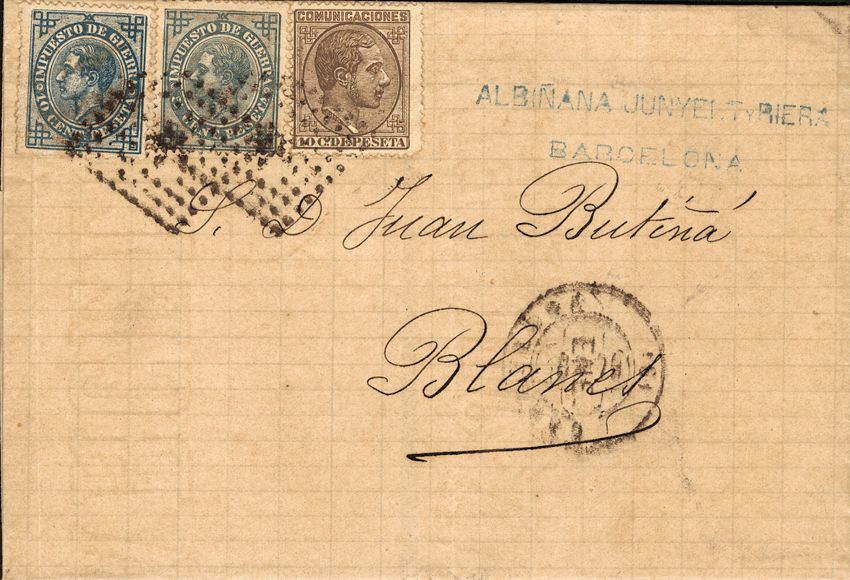 IMPUESTO DE GUERRA
10 CENTS DE PESETA
IMPUESTO DE GUERRA
PESETA
COMUNICACIONES
10 Cs DE PESETA
ALBIÑANA JUNYENT Y RIERA
BARCELONA
S. D Juan Butiñá
Blanes